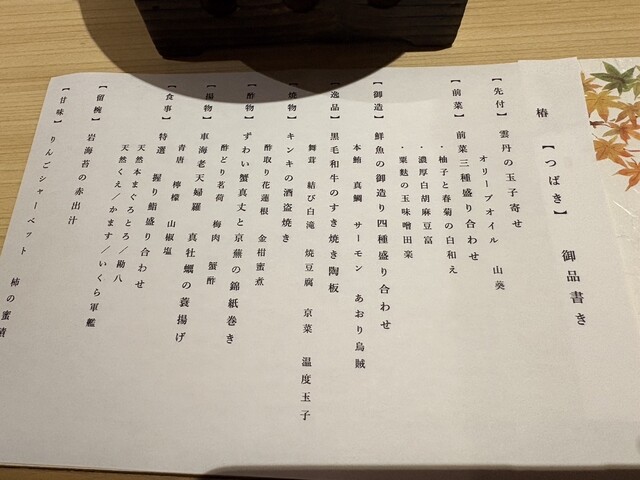 椿 【つばき】 御品書き
【先付】 雲丹の玉子寄せ
オリーブオイル 山葵
【前菜】 前菜三種盛り合わせ
・柚子と春菊の白和え
・濃厚白胡麻豆富
・粟麩の玉味噌田楽
【御造】 鮮魚の御造り四種盛り合わせ
本鮪 真鯛 サーモン あおり烏賊
【逸品】 黒毛和牛のすき焼き陶板
舞茸 結び白滝 焼豆腐 京菜 温度玉子
【焼物】 キンキの酒盗焼き
酢取り花蓮根 金柑蜜煮
【酢物】 ずわい蟹真丈と京蕪の錦紙巻き
酢どり茗荷 梅肉 蟹酢
【揚物】 車海老天婦羅 真牡蠣の蓑揚げ
青唐 檸檬 山椒塩
【食事】 特選 握り鮨盛り合わせ
天然本まぐろとろ/勘八
天然くえ/かます/いくら軍艦
【留椀】 岩海苔の赤出汁
【甘味】 りんごシャーベット 柿の蜜漬